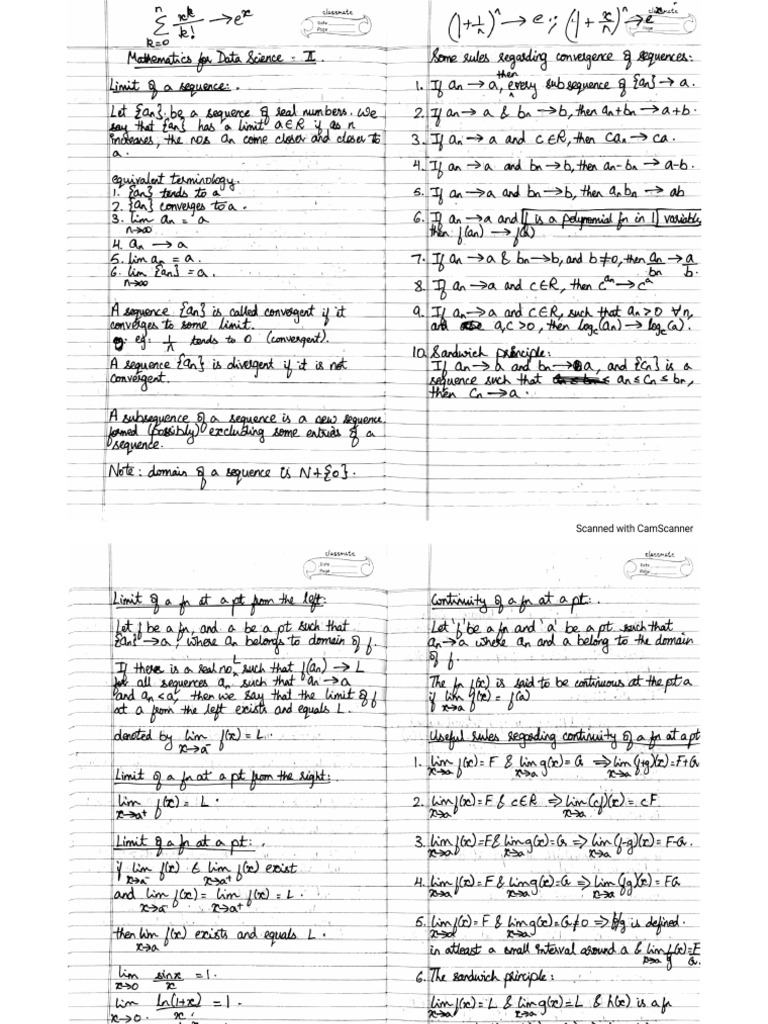 n
Σ x^k/k! → e^x
k=0
classmate
Date
Page
Mathematics for Data Science - II.
Limit of a sequence:.
Let {an} be a sequence of real numbers. We
say that {an} has a limit a∈R if as n
increases, the nos an come closer and closer to
a.
equivalent terminology.
1. {an} tends to a
2. {an} converges to a.
3. lim an = a
n→∞
4. an → a
5. lim an = a.
6. lim {an} = a.
n→∞
A sequence {an} is called convergent if it
converges to some limit.
eg: 1/n tends to 0 (convergent).
A sequence {an} is divergent if it is not
convergent.
A subsequence of a sequence is a new sequence
formed (possibly) excluding some entries of a
sequence.
Note: domain of a sequence is N+{0}.
(1+1/n)^n → e ; (1+x/n)^n → e^x
classmate
Date
Page
Some rules regarding convergence of sequences:
1. If an → a, then every subsequence of {an} → a.
2. If an → a & bn → b, then an+bn → a+b.
3. If an → a and c∈R, then can → ca.
4. If an → a and bn → b, then an-bn → a-b.
5. If an → a and bn → b, then an bn → ab
6. If an → a and f is a polynomial fn in 1 variable,
then f(an) → f(a)
7. If an → a & bn → b, and b≠0, then an/bn → a/b.
8. If an → a and c∈R, then c^an → c^a
9. If an → a and c∈R, such that an>0 ∀n,
and a,c>0, then logc(an) → logc(a).
10. Sandwich principle:
If an → a and bn → a, and {cn} is a
sequence such that an ≤ cn ≤ bn,
then cn → a.
Scanned with CamScanner
classmate
Date
Page
Limit of a fn at a pt from the left:
Let f be a fn, and a be a pt such that
{an} → a, where an belongs to domain of f.
If there is a real no L such that f(an) → L
for all sequences an such that an → a
and an < a, then we say that the limit of f
at a from the left exists and equals L.
denoted by lim f(x) = L.
x→a-
Limit of a fn at a pt from the right:
lim f(x) = L.
x→a+
Limit of a fn at a pt:.
if lim f(x) & lim f(x) exist
x→a- x→a+
and lim f(x) = lim f(x) = L.
x→a- x→a+
then lim f(x) exists and equals L.
x→a
lim sinx/x = 1.
x→0
lim ln(1+x)/x = 1.
x→0
classmate
Date
Page
Continuity of a fn at a pt:.
Let 'f' be a fn and 'a' be a pt such that
an → a where an and a belong to the domain
of f.
The fn f(x) is said to be continuous at the pt a
if lim f(x) = f(a)
x→a
Useful rules regarding continuity of a fn at a pt
1. lim f(x) = F & lim g(x) = G ⇒ lim (f+g)(x) = F+G
x→a x→a x→a
2. lim f(x) = F & c∈R ⇒ lim (cf)(x) = cF
x→a x→a
3. lim f(x) = F & lim g(x) = G ⇒ lim (f-g)(x) = F-G.
x→a x→a x→a
4. lim f(x) = F & lim g(x) = G ⇒ lim (fg)(x) = FG
x→a x→a x→a
5. lim f(x) = F & lim g(x) = G ≠ 0 ⇒ f/g is defined.
x→a x→a
in atleast a small interval around a & lim f/g(x) = F/G
x→a
6. The sandwich principle:
lim f(x) = L & lim g(x) = L & h(x) is a fn